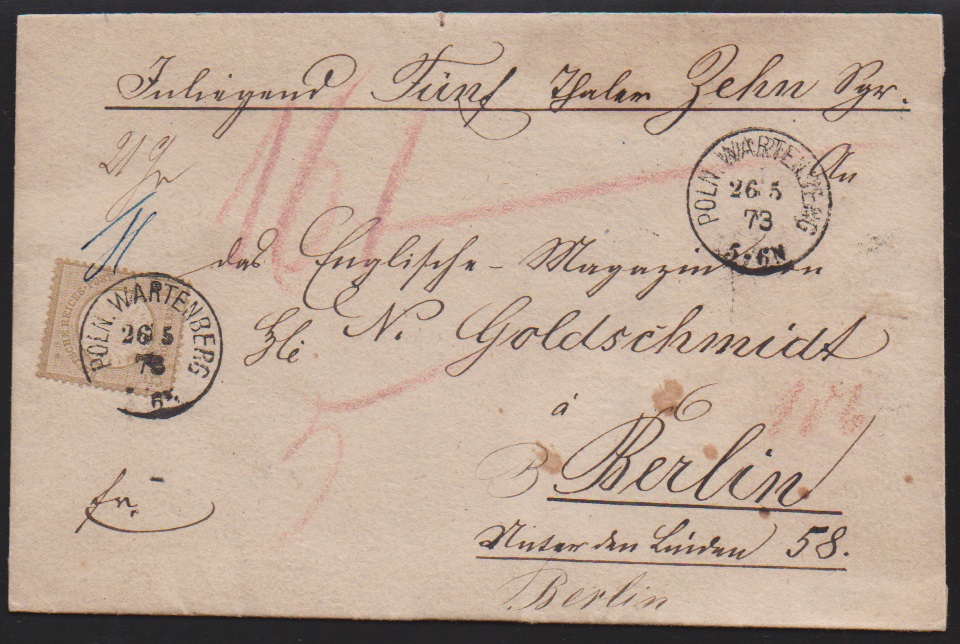 Inliegend Fünf Thaler Zehn Sgr.
An
POLN. WARTENBERG
26 5
73
5-6N
das Englische - Magazin von
N. Goldschmidt
à
B Berlin
Unter den Linden 58.
Berlin
POLN. WARTENBERG
26 5
73
fr.